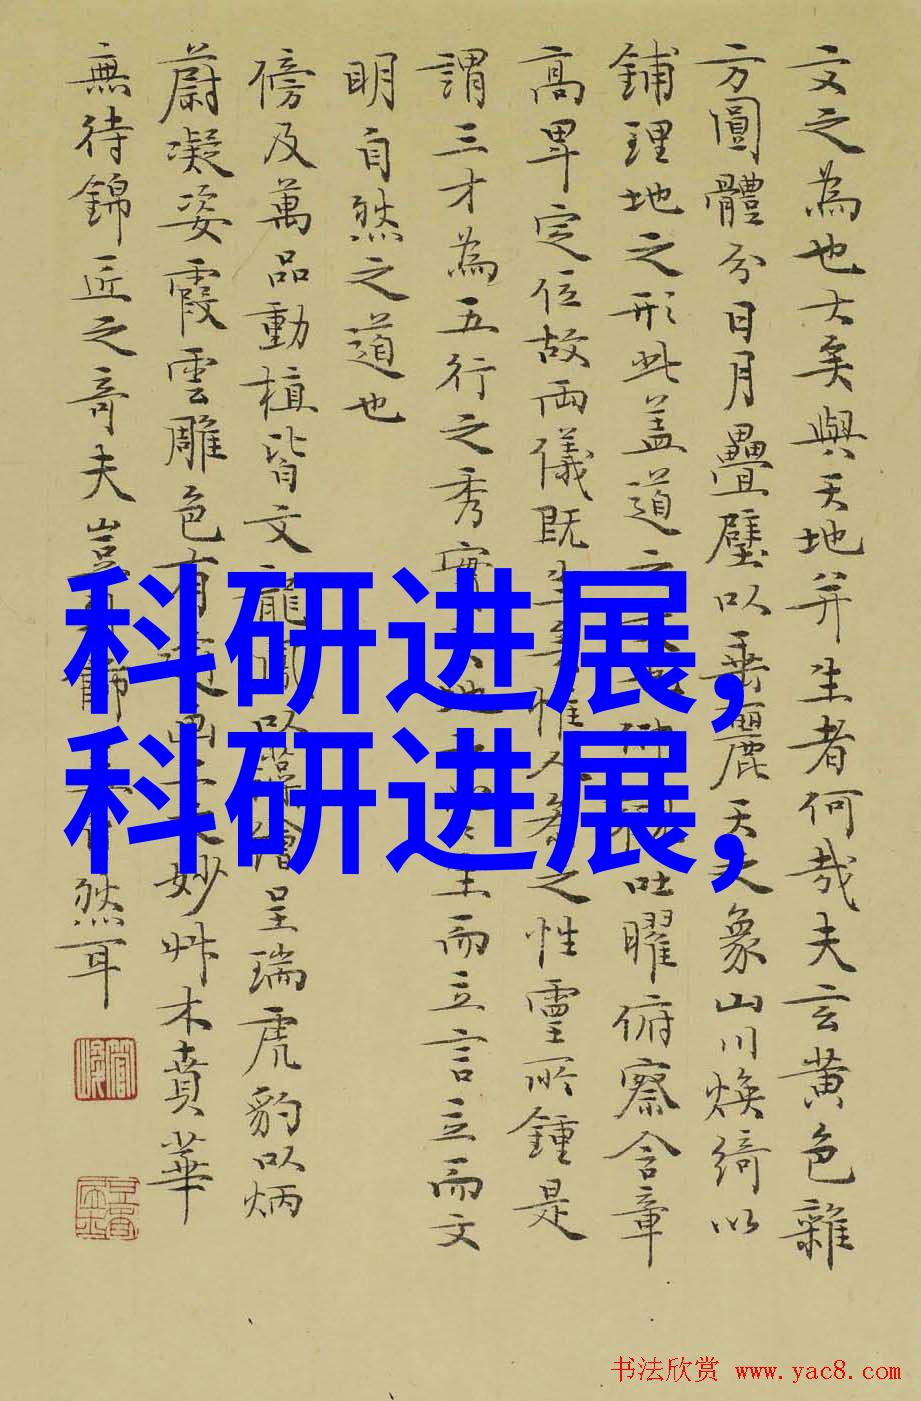 文之為也大矣與天地并生者何哉夫玄黄色雜
方圓體分日月疊璧以垂麗天之象山川煥綺以
鋪理地之形此盖道之吐曜俯察含章
高卑定位故兩儀既生矣惟人參之性靈所鍾是
謂三才為五行之秀實天地生而立言立而文
明自然之道也
傍及萬品動植皆文龍鳳以藻繪呈瑞虎豹以炳
蔚凝姿霞雲雕色有妙艸木賁華
無待錦匠之奇夫豈飾然耳
科研进展,
科研进展,
书法欣赏 www.yac8.com